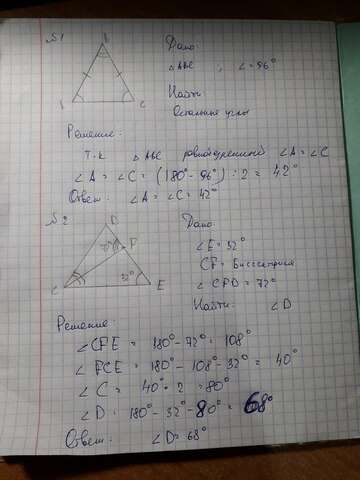 №1
B
A
C
Дано:
△ABC , ∠=96°
Найти:
Остальные углы
Решение:
Т.к △ABC равнобедренный ∠A = ∠C
∠A = ∠C = (180° - 96°) : 2 = 42°
Ответ: ∠A = ∠C = 42°
№2
D
F
72°
32°
C
E
Дано:
∠E = 32°
CF = Биссектриса
∠CFD = 72°
Найти: ∠D
Решение:
∠CFE = 180° - 72° = 108°
∠FCE = 180° - 108° - 32° = 40°
∠C = 40° · 2 = 80°
∠D = 180° - 32° - 80° = 68°
Ответ: ∠D = 68°